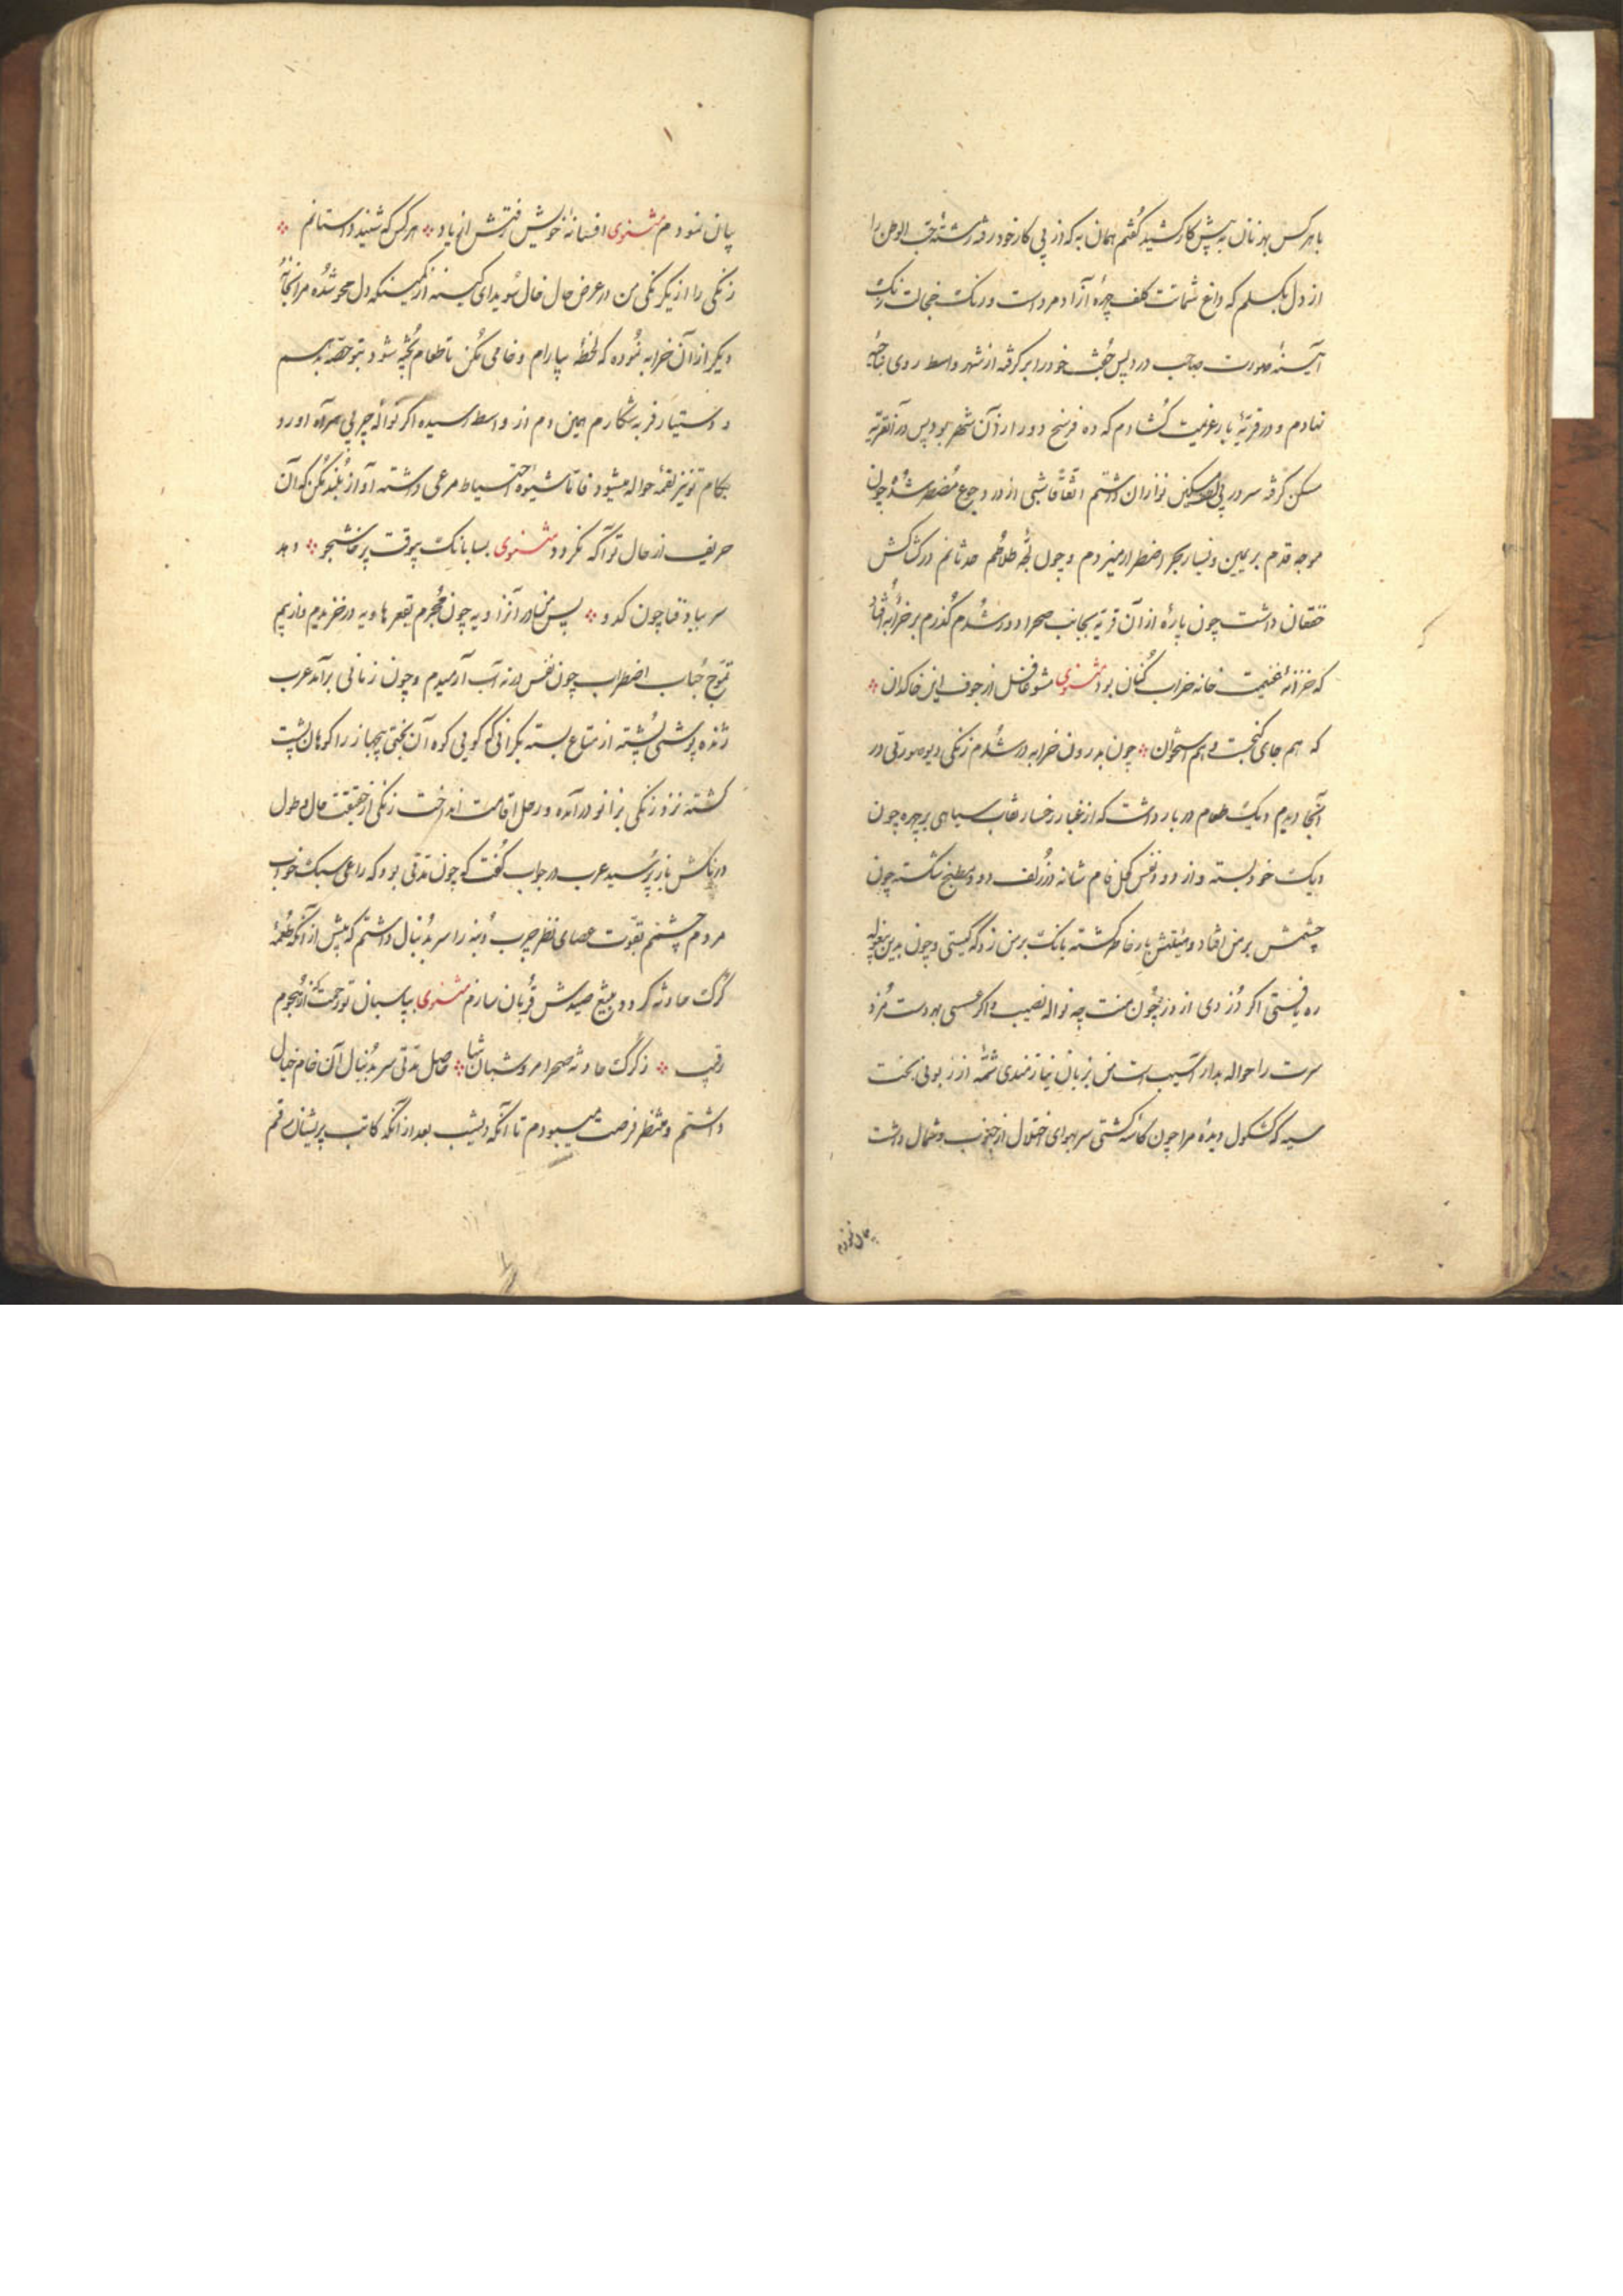 با هر کس بهر نان به پیش کار کشید گفتم همان به که از پی کار خود رفته رشتهٔ حب الوطن را
از دل بکسلم که داغ شماتت کلف چهرهٔ آزاد مردست و رنک خجالت زنک
آیینهٔ صورت صاحب درد پس خود را برکرفته از شهر واسط روی بناحیهٔ
نهادم و در قریهٔ بار عزیمت کشادم که ده فرسخ دور از آن شهر بود پس در آنقریه
سکن کرفته سر در پی داشتم اتفاقا شبی از درد جوع مضطر شده چون
موجه قدم بر یمین و یسار بحر اضطرار میزدم و چون لجه طلاطم حدثانم در کشاکش
خفقان داشت چون پارهٔ از آن قریه بجانب صحرا دور شدم کذرم بر خرابهٔ افتاد
که خزانهٔ غنیمت خانه خراب کنان بود مثنوی مشو غافل از جوف این خاکدان
که هم جای کنجست و هم استخوان چون بدرون خرابه در شدم زنکی دیو صورتی در
آنجا دیدم دیک طعام در بار داشت که از غبار رخسار نقاب سیاهی بر چهره چون
دیک خود بسته و از دود نفس کحل فام شانه در زلف دود مطبخ شکسته چون
چشمش بر من افتاد و بار خاطر کشته بانک بر من زد که کیستی و چون بدین بیغوله
ره یافتی اکر دزدی از دزد چون منت چه نواله نصیب و اکر عسسی بهر دست مزد
سرت را حواله بدار آسیب است من بزبان نیازمندی شمهٔ از زبونی بخت
سیه که کشکول دیدهٔ مرا چون کاسه کشتی سر بهوای اختلال از جنوب و شمال داشت
بیان نمودم
بیان نمودم مثنوی افسانهٔ خویش رفتش از یاد هر کس که شنید داستانم
زنکی را از یکرنکی من در عرض حال خال سویدای کینه از کمینکه دل محو شده مرا بجانب
دیکر از آن خرابه نموده که لحظهٔ بیارام و خامی مکن تا طعام پخته شود بتو حصه بدهم
و دستیار فربه شکارم همین دم از واسط رسیده اکر نواله چربی همراه آورد
بکام تو نیز لقمهٔ حواله میشود فاما شیوهٔ احتیاط مرعی داشته آواز بلند مکن که آن
حریف از حال تو آکه نکردد مثنوی بسا بانک بیوقت پرخاشجو دهد
سر بباد قفا چون کدو پس من در آن زاویه چون مجرم بقعر هاویه در خزیدم و از بیم
تموج حباب اضطراب چون نفس در ته آب آرمیدم و چون زمانی برآمد عرب
ژنده پوشی پشته از متاع بسته بکرانی که کویی کوه آن بختی بیجهاز را کوهان پشت
کشته نزد زنکی بزانو درآمده و رحل اقامت انداخت زنکی از حقیقت حال و طول
درنکش باز پرسید عرب در جواب کفت که چون مدتی بود که راعی سبک خواب
مردم چشم بقوت عصای نظر چرب دنبه را سر بدنبال داشتم که پیش از آنکه طعمهٔ
کرک حادثه کردد بتیغ صیدش قربان سازم مثنوی بپاسبان تو رحمت کند از هجوم
رقیب ز کرک حادثه صحرا مرو شبان شبا حاصل مدتی سر بدنبال آن خام خیال
داشتم و منتظر فرصت میبودم تا آنکه دیشب بعد از آنکه کاتب پریشان رقم